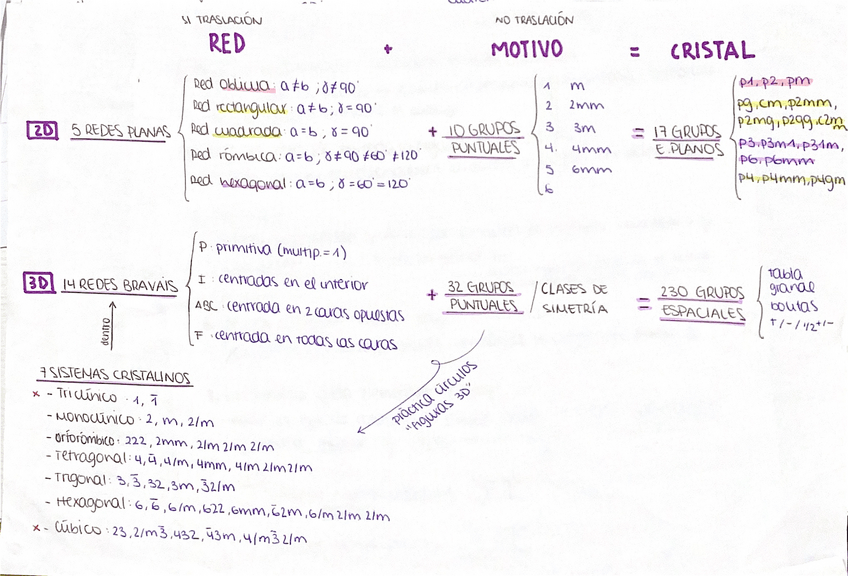 SI TRASLACIÓN
NO TRASLACIÓN
RED + MOTIVO = CRISTAL
2D 5 REDES PLANAS
Red oblicua: a≠b ; γ≠90°
Red rectangular: a≠b ; γ=90°
Red cuadrada: a=b ; γ=90°
Red rómbica: a=b ; γ≠90°≠60°≠120°
Red hexagonal: a=b ; γ=60°=120°
+ 10 GRUPOS PUNTUALES
1 m
2 2mm
3 3m
4 4mm
5 6mm
6
= 17 GRUPOS E.PLANOS
p1, p2, pm
pg, cm, p2mm,
p2mg, p2gg, c2m
m
p3, p3m1, p31m,
p6, p6mm
p4, p4mm, p4gm
3D 14 REDES BRAVAIS
P: primitiva (multip.=1)
I: centradas en el interior
ABC: centrada en 2 caras opuestas
F: centrada en todas las caras
+ 32 GRUPOS PUNTUALES / CLASES DE SIMETRÍA
= 230 GRUPOS ESPACIALES
tabla
grande
bolitas
+/-/ 1/2+/-
dentro
práctica círculos
"figuras 3D"
7 SISTEMAS CRISTALINOS
x - Triclínico: 1, 1̄
- Monoclínico: 2, m, 2/m
- Ortorómbico: 222, 2mm, 2/m 2/m 2/m
- Tetragonal: 4, 4̄, 4/m, 4mm, 4/m 2/m 2/m
- Trigonal: 3, 3̄, 32, 3m, 3̄2/m
- Hexagonal: 6, 6̄, 6/m, 622, 6mm, 6̄2m, 6/m 2/m 2/m
x - Cúbico: 23, 2/m3̄, 432, 4̄3m, 4/m3̄ 2/m